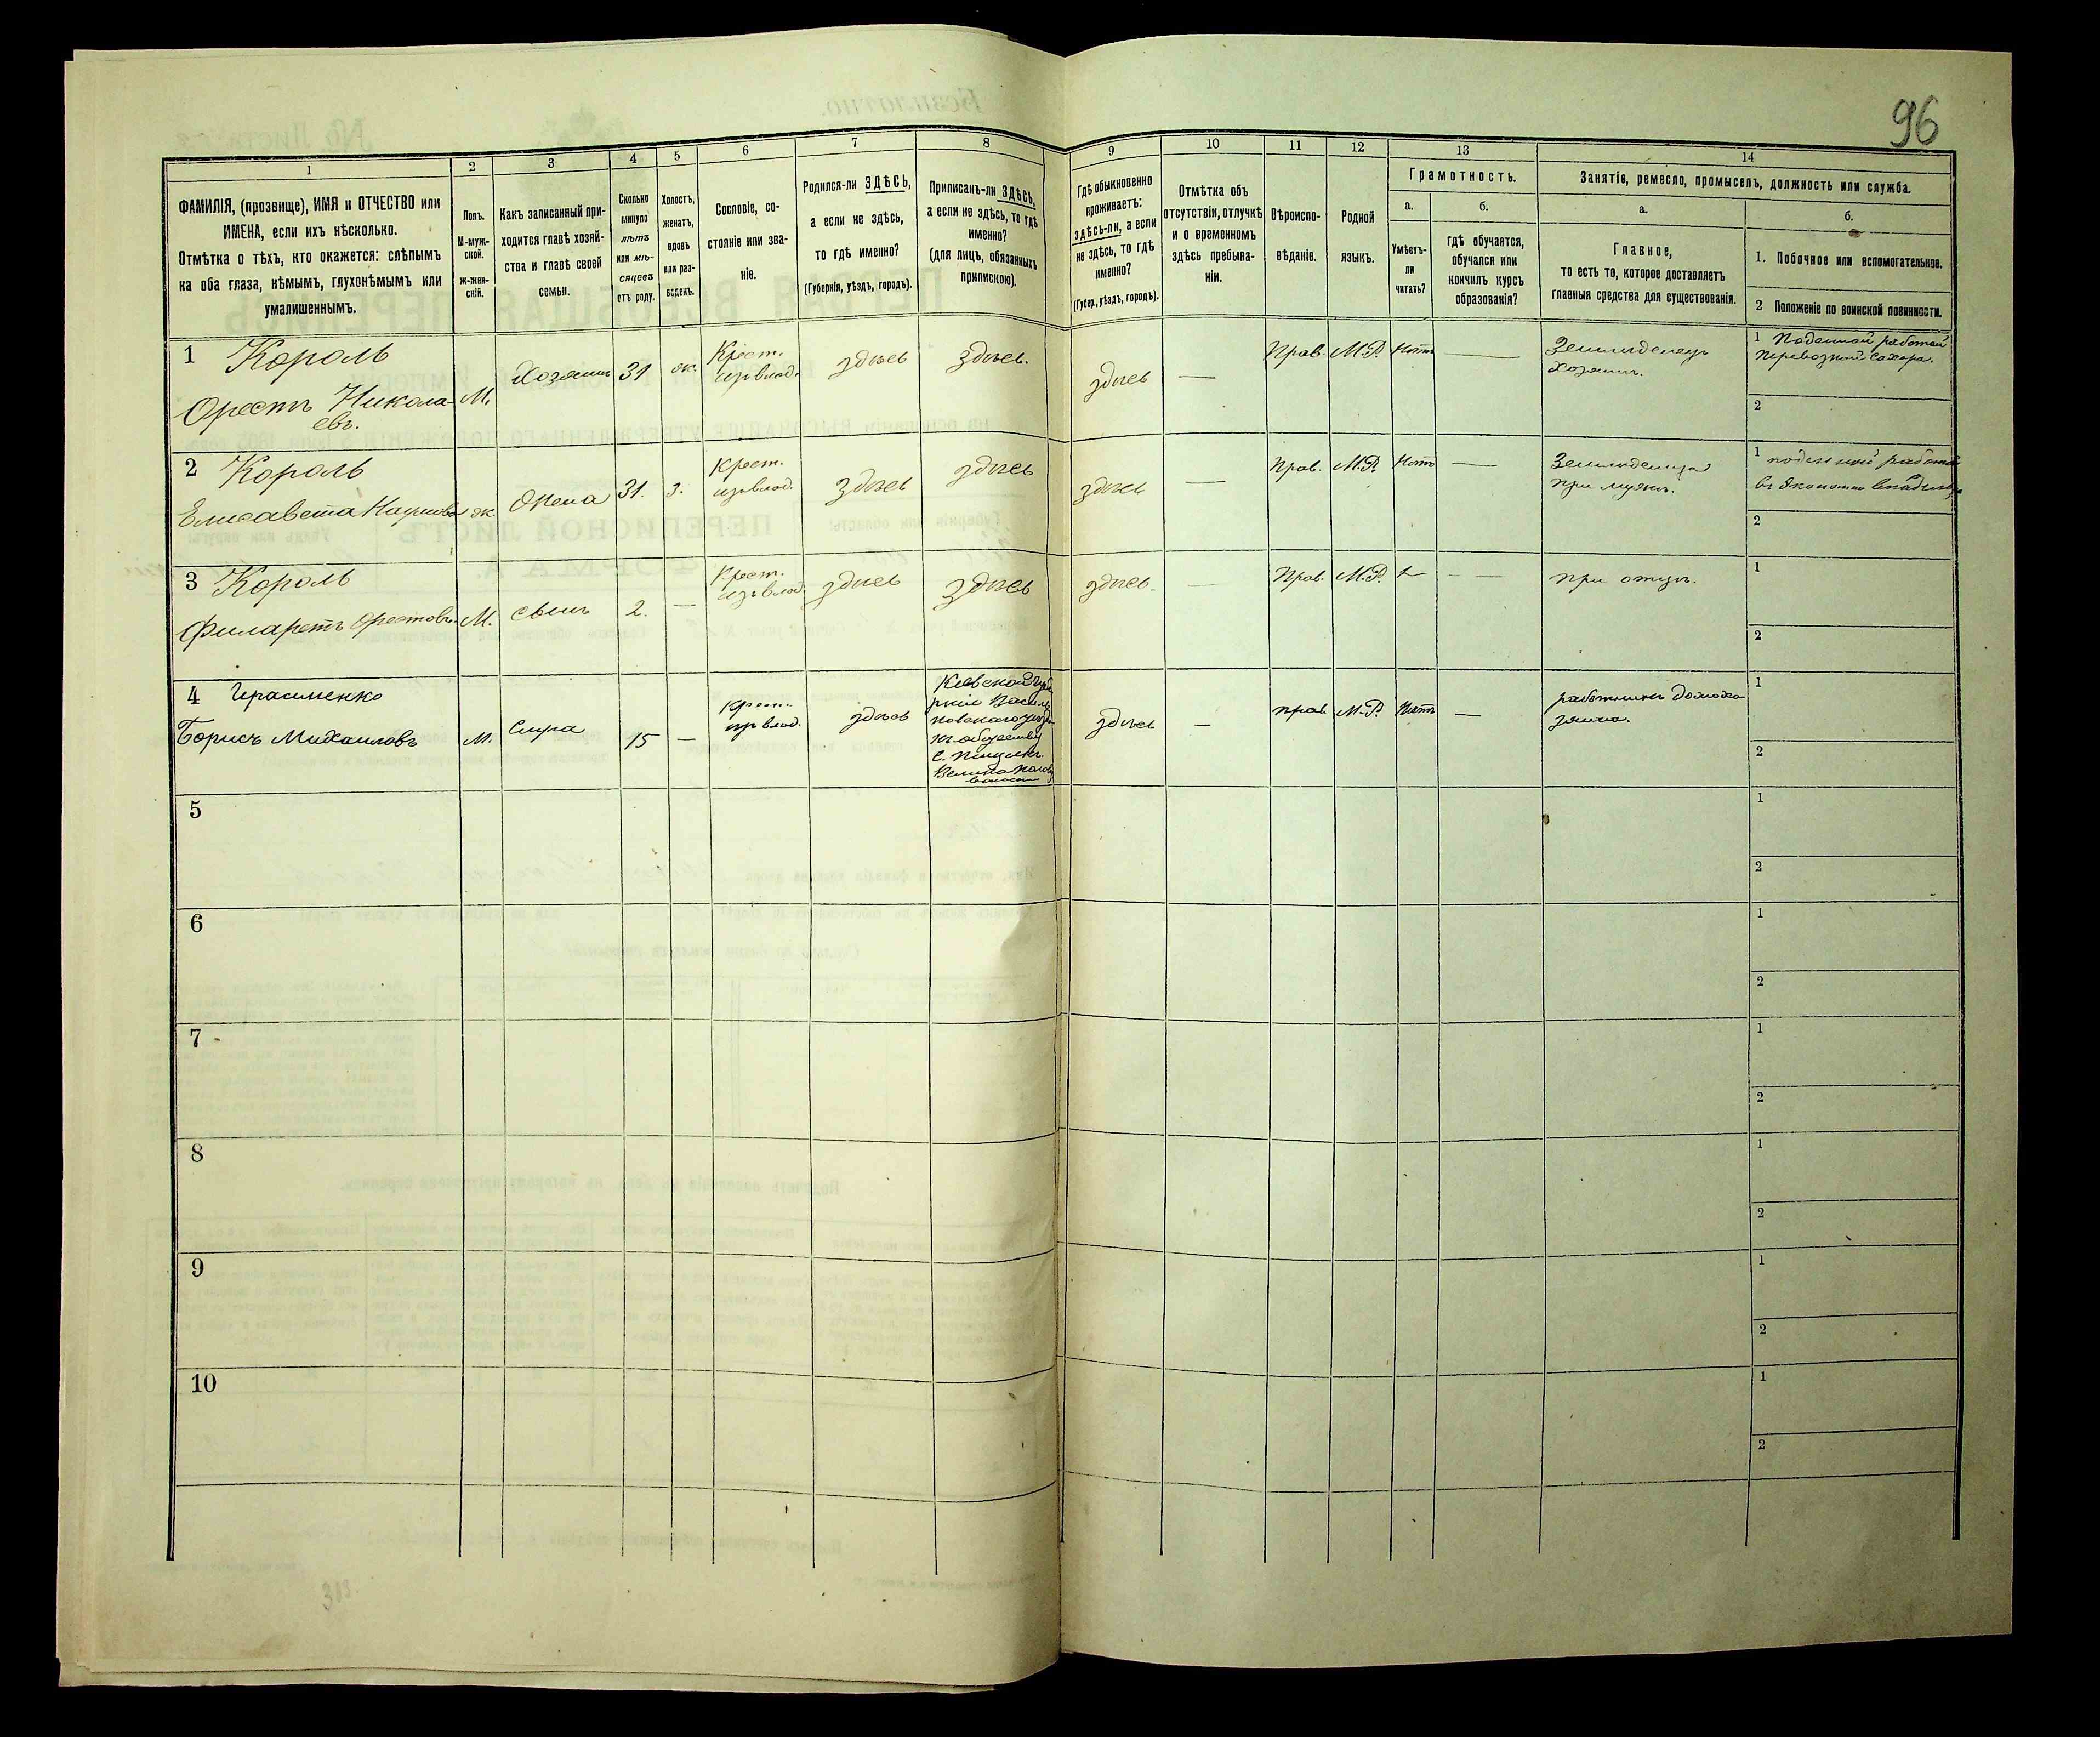 96
1
2
3
4
5
6
7
8
9
10
11
12
13
14
ФАМИЛІЯ, (прозвище), ИМЯ и ОТЧЕСТВО или
ИМЕНА, если ихъ нѣсколько.
Отмѣтка о тѣхъ, кто окажется: слѣпымъ
на оба глаза, нѣмымъ, глухонѣмымъ или
умалишеннымъ.
Полъ.
М-муж-
ской.
Ж-жен-
скій.
Какъ записанный при-
ходится главѣ хозяй-
ства и главѣ своей
семьи.
Сколько
минуло
лѣтъ
или мѣ-
сяцевъ
отъ роду.
Холостъ,
женатъ,
вдовъ
или раз-
веденъ.
Сословіе, со-
стояніе или зва-
ніе.
Родился-ли ЗДѢСЬ,
а если не здѣсь,
то гдѣ именно?
(Губернія, уѣздъ, городъ).
Приписанъ-ли ЗДѢСЬ,
а если не здѣсь, то гдѣ
именно?
(для лицъ, обязанныхъ
припискою).
Гдѣ обыкновенно
проживаетъ:
здѣсь-ли, а если
не здѣсь, то гдѣ
именно?
(Губер., уѣздъ, городъ).
Отмѣтка объ
отсутствіи, отлучкѣ
и о временномъ
здѣсь пребыва-
ніи.
Вѣроиспо-
вѣданіе.
Родной
языкъ.
Грамотность.
а.
Умѣетъ-
ли
читать?
б.
гдѣ обучается,
обучался или
кончилъ курсъ
образованія?
Занятіе, ремесло, промыселъ, должность или служба.
а.
Главное,
то есть то, которое доставляетъ
главныя средства для существованія.
б.
1. Побочное или вспомогательное.
2 Положеніе по воинской повинности.
1 Король
Орестъ Никола-
евъ.
М.
Хозяинъ
31
ж.
Крест.
изъ влад.
здѣсь
здѣсь.
здѣсь
—
Прав.
М.Р.
Нѣтъ
—
Земледелецъ
Хозяинъ.
1 Поденной работой
перевозкой сахара.
2
2 Король
Елисавета Наумова
ж.
Жена
31.
з.
Крест.
изъ влад.
здѣсь
здѣсь
здѣсь
—
Прав.
М.Р.
Нѣтъ
—
Земледелица
при мужѣ.
1 поденной работой
въ Экономіи
2
3 Король
Филаретъ Орестовъ
М.
Сынъ
2.
—
Крест.
изъ влад.
здѣсь
здѣсь
здѣсь.
—
Прав.
М.Р.
— —
при отцѣ.
1
2
4 Герасименко
Борисъ Михаиловъ
М.
Сирота
15
—
Крест.
изъ влад.
здѣсь
Кіевской Губе
рніи Василь
ковскаго уѣзда
къ обществу
с.
волости
здѣсь
—
прав
М.Р.
Нѣтъ
—
работникъ домохо-
зяина.
1
2
5
1
2
6
1
2
7
1
2
8
1
2
9
1
2
10
1
2